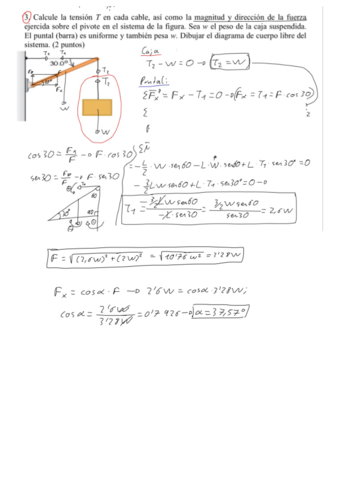 3. Calcule la tensión T en cada cable, así como la magnitud y dirección de la fuerza
ejercida sobre el pivote en el sistema de la figura. Sea w el peso de la caja suspendida.
El puntal (barra) es uniforme y también pesa w. Dibujar el diagrama de cuerpo libre del
sistema. (2 puntos)
Caja
T₂ - W = 0 → T₂ = W
30.0°
T₂
T₁
W
W
Puntal:
ΣFx = Fx - T₁ = 0 → Fx = T₁ = F cos 30
cos 30 = Fx/F → F·cos 30
sen 30 = Fy/F → F·sen 30
= -L/2 · W·sen60 - L·W·sen60 + L·T₁·sen30° = 0
- 3/2 L W sen60 + L·T₁·sen30° = 0 →
T₁ = -3/2 L W sen60 / -L·sen30 = 3/2 W sen60 / sen30 = 2,6W
30°
F = √((2,6W)² + (2W)²) = √(10'76 W²) = 3'28W
Fx = cosα · F → 2'6W = cosα · 3'28W;
cosα = 2'6W / 3'28W = 0'7926 → α = 37,57°